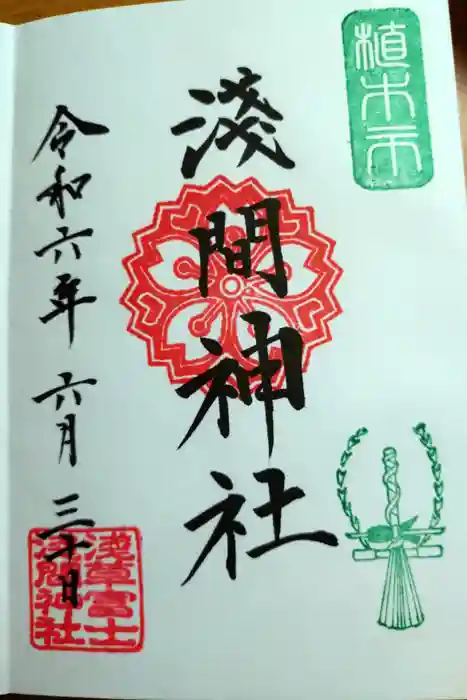 植木市
淺間神社
令和六年 六月 三十日
浅草富士
浅間神社